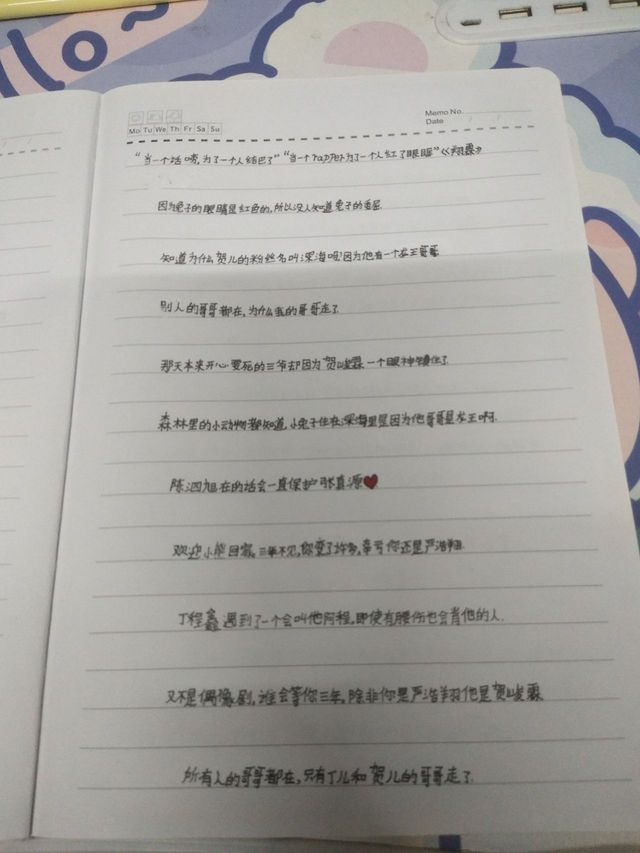 Memo No.
Mo Tu We Th Fr Sa Su
Date
"当一个话唠,为了一个人结巴了""当一个rapper为了一个人红了眼眶"《翔霖》
因为兔子的眼睛是红色的,所以没人知道兔子的委屈.
知道为什么贺儿的粉丝名叫深海呢!因为他有一个龙王哥哥
别人的哥哥都在,为什么我的哥哥走了.
那天本来开心要死的三爷却因为贺峻霖一个眼神镇住了.
森林里的小动物都知道,小兔子住在深海里是因为他哥哥是龙王啊.
陈泗旭在的话会一直保护张真源❤
欢迎小熊回家,三年不见,你变了许多,幸亏你还是严浩翔.
丁程鑫遇到了一个会叫他阿程,即使有腰伤也会背他的人.
又不是偶像剧,谁会等你三年,除非你是严浩翔他是贺峻霖
所有人的哥哥都在,只有丁儿和贺儿的哥哥走了.